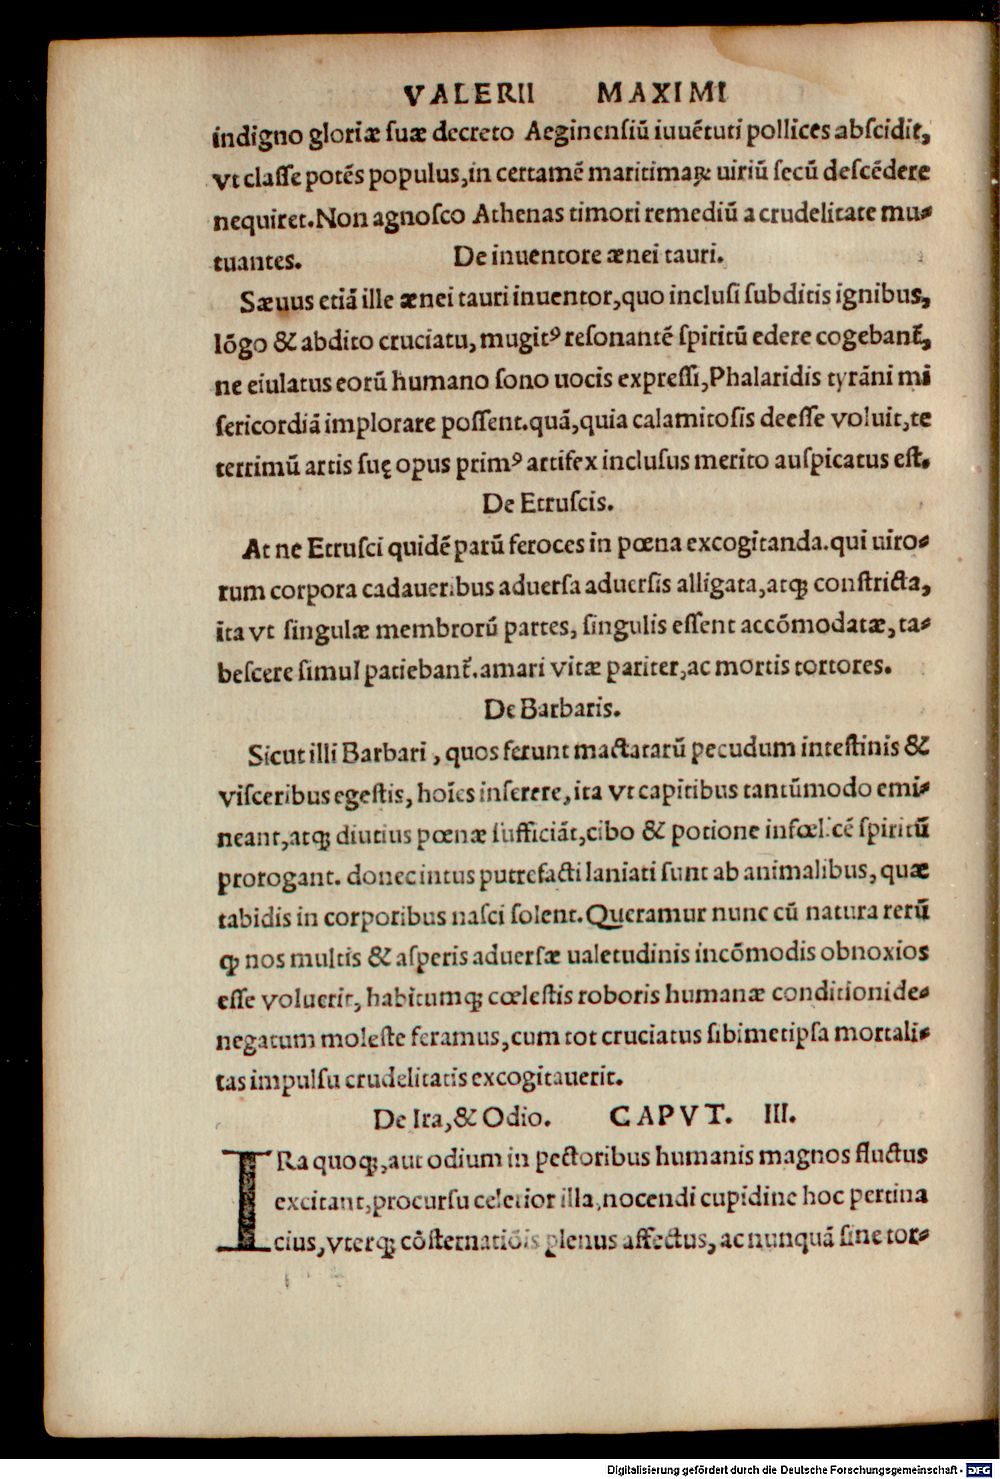 VALERII MAXIMI
indigno gloriæ ſuæ decreto Aeginenſiū iuuētuti pollices abſcidit,
vt claſſe potēs populus, in certamē maritimaꝝ uiriū ſecū deſcēdere
nequiret. Non agnoſco Athenas timori remediū a crudelitate mu⸗
tuantes. De inuentore ænei tauri.
Sæuus etiā ille ænei tauri inuentor, quo incluſi ſubditis ignibus,
lōgo & abdito cruciatu, mugitꝰ reſonantē ſpiritū edere cogebant̃,
ne eiulatus eorū humano ſono uocis expreſſi, Phalaridis tyrāni mi
ſericordiā implorare poſſent. quā, quia calamitoſis deeſſe voluit, te
terrimū artis ſuę opus primꝰ artifex incluſus merito auſpicatus eſt.
De Etruſcis.
At ne Etruſci quidē parū feroces in pœna excogitanda. qui uiro⸗
rum corpora cadaueribus aduerſa aduerſis alligata, atqꝫ conſtricta,
ita vt ſingulæ membrorū partes, ſingulis eſſent accōmodatæ, ta⸗
beſcere ſimul patiebant̃. amari vitæ pariter, ac mortis tortores.
De Barbaris.
Sicut illi Barbari, quos ferunt mactatarū pecudum inteſtinis &
viſceribus egeſtis, hoīes inſerere, ita vt capitibus tantūmodo emi⸗
neant, atqꝫ diutius pœnæ ſufficiāt, cibo & potione infœlicē ſpiritū
prorogant. donec intus putrefacti laniati ſunt ab animalibus, quæ
tabidis in corporibus naſci ſolent. Queramur nunc cū natura rerū
ꝙ nos multis & aſperis aduerſæ ualetudinis incōmodis obnoxios
eſſe voluerit, habitumqꝫ cœleſtis roboris humanæ conditioni de⸗
negatum moleſte feramus, cum tot cruciatus ſibimetipſa mortali⸗
tas impulſu crudelitatis excogitauerit.
De Ira, & Odio. CAPVT. III.
IRa quoqꝫ, aut odium in pectoribus humanis magnos fluctus
excitant, procurſu celerior illa, nocendi cupidine hoc pertina
cius, vterqꝫ cōſternatiōis plenus affectus, ac nunquā ſine tor⸗
Digitalisierung gefördert durch die Deutsche Forschungsgemeinschaft - DFG